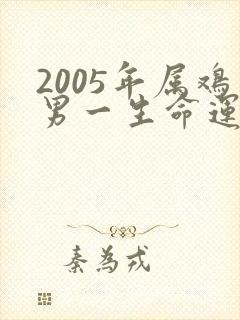 2005年属鸡
男一生命运
秦为戎